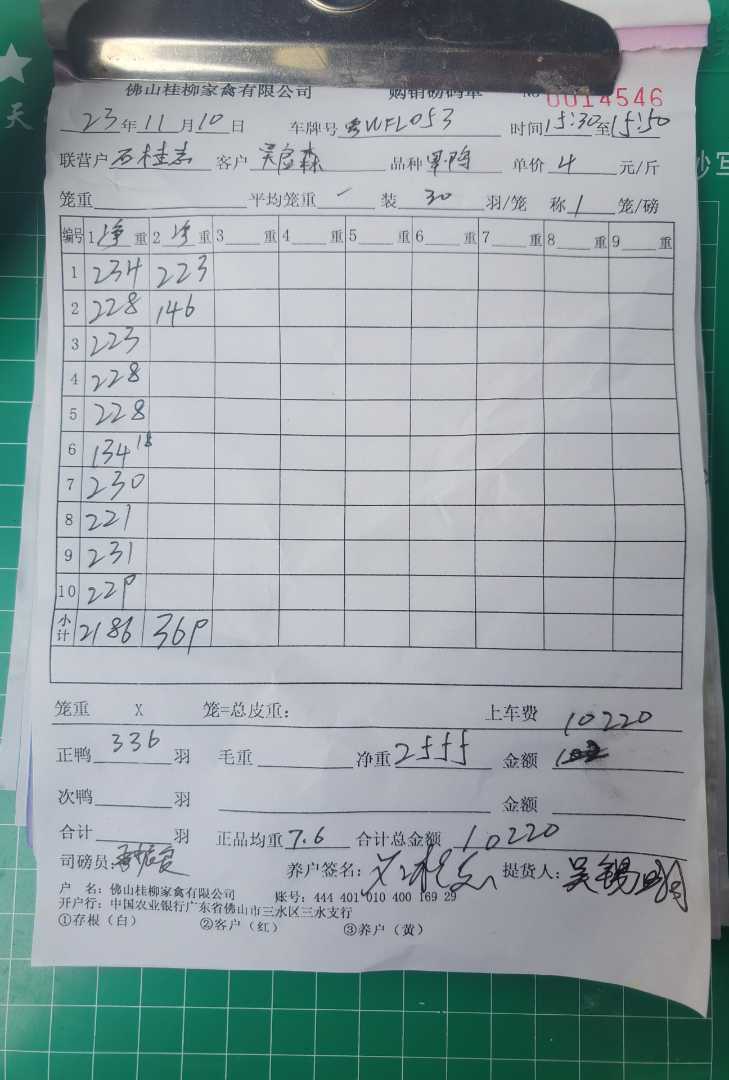 佛山桂柳家禽有限公司 购销磅码单 No 0014546
23年11月10日 车牌号 WFL053 时间15:30至15:50
联营户 石桂志 客户 吴启森 品种 单价 4 元/斤
笼重 平均笼重 装 30 羽/笼 称 1 笼/磅
编号 1 净 重 2 净 重 3 重 4 重 5 重 6 重 7 重 8 重 9 重
1 234 223
2 228 146
3 223
4 228
5 228
6 134 18
7 230
8 221
9 231
10 229
小计 2186 369
笼重 X 笼=总皮重: 上车费 10220
正鸭 336 羽 毛重 净重 2555 金额
次鸭 羽 金额
合计 羽 正品均重 7.6 合计总金额 10220
司磅员: 养户签名: 提货人: 吴锡明
户 名: 佛山桂柳家禽有限公司 账号: 444 401 010 400 169 29
开户行: 中国农业银行广东省佛山市三水区三水支行
①存根(白) ②客户(红) ③养户(黄)